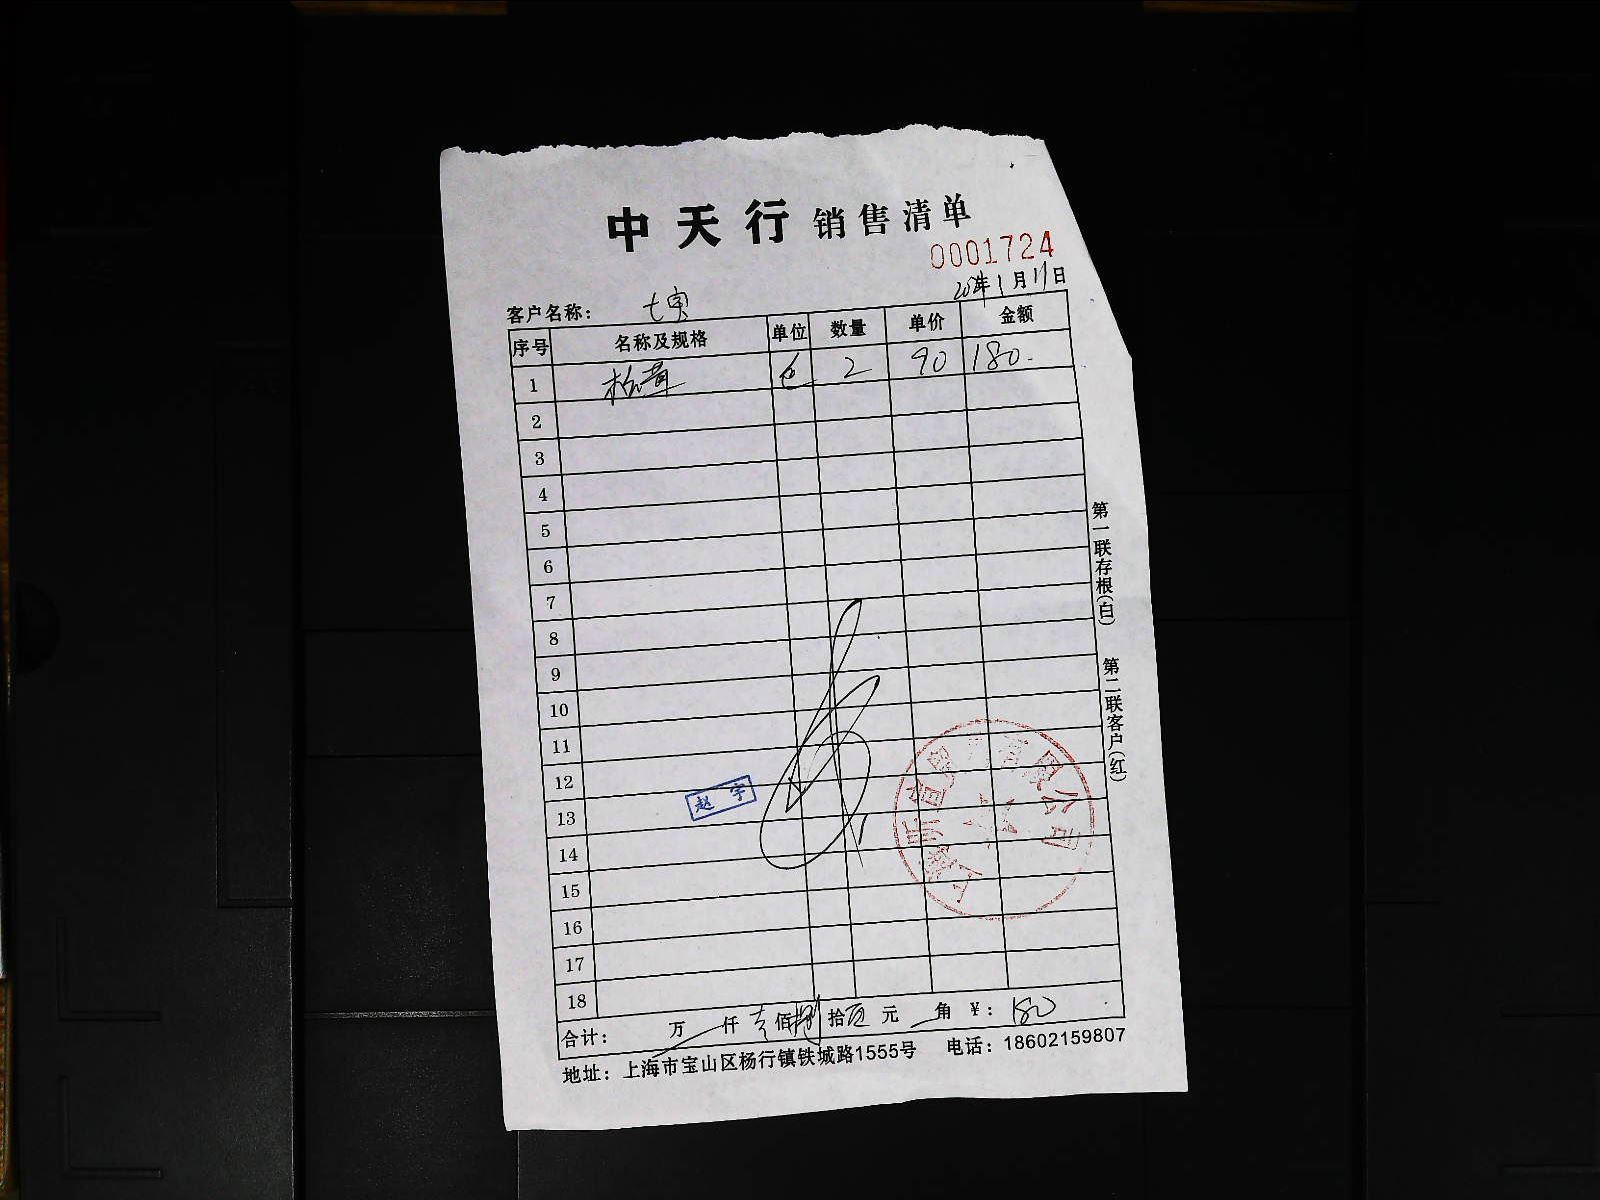 中天行 销售清单
0001724
年1月11日
客户名称： 七宝
序号 名称及规格 单位 数量 单价 金额
1 包 2 90 180.
2
3
4
5
6
7
8
9
10
11
12
13
14
15
16
17
18
赵宇
有限公司
合计： 万 仟 壹 佰 捌 拾 元 角 ¥： 180
地址：上海市宝山区杨行镇铁城路1555号 电话：18602159807
第一联存根(白) 第二联客户(红)